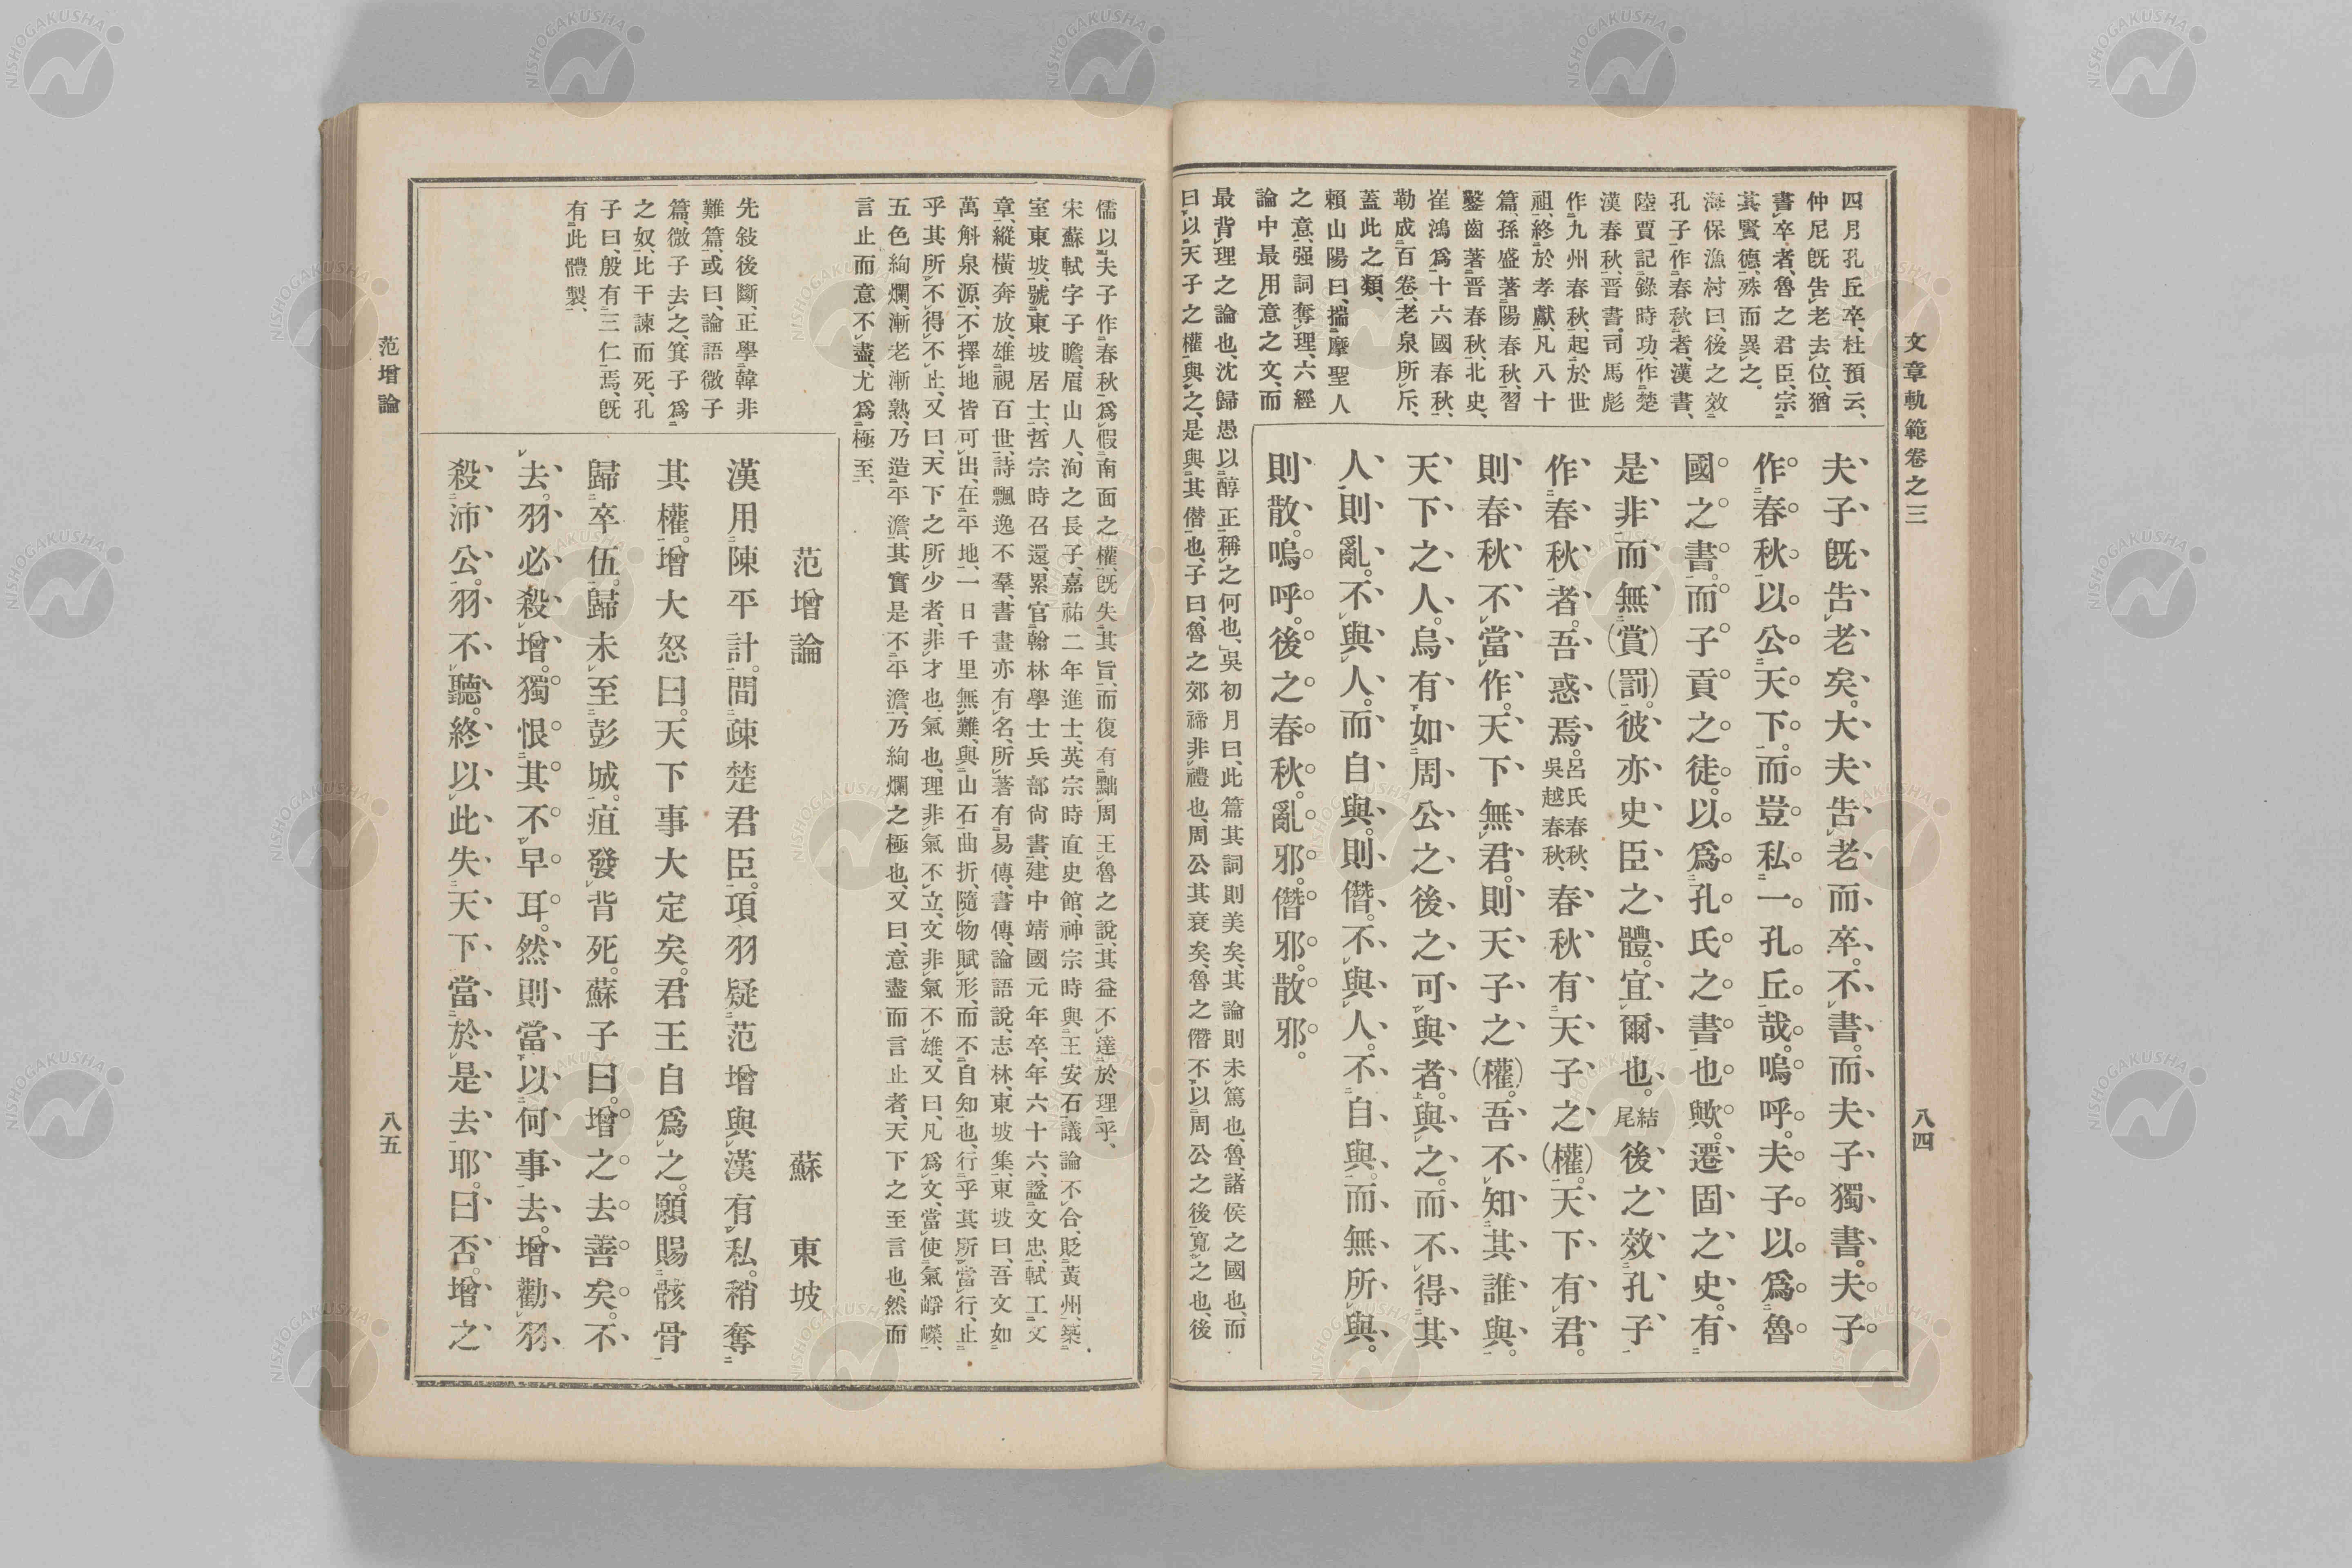 文章軌範卷之三
八四
四月孔丘卒、杜預云、
仲尼既告老去位、猶
書卒者、魯之君臣、宗
其賢德、殊而異之。
海保漁村曰、後之效
孔子作春秋者、漢書、
陸賈記錄時功、作楚
漢春秋、晉書、司馬彪
作九州春秋、起於世
祖、終於孝獻、凡八十
篇、孫盛著陽春秋、習
鑿齒著晉春秋、北史、
崔鴻爲十六國春秋、
勒成百卷、老泉所斥、
蓋此之類、
賴山陽曰、揣摩聖人
之意、强詞奪理、六經
論中最用意之文、而
夫子既告老矣。大夫告老而卒。不書。而夫子獨書。夫子
作春秋以公天下。而豈私一孔丘哉。嗚呼。夫子以爲魯
國之書。而子貢之徒。以爲孔氏之書也歟。遷固之史。有
是非而無(賞)(罰)。彼亦史臣之體。宜爾也。結尾後之效孔子
作春秋者。吾惑焉。呂氏春秋、吳越春秋、春秋有天子之(權)。天下有君。
則春秋不當作。天下無君。則天子之(權)。吾不知其誰與。
天下之人。烏有如周公之後之可與者。與之。而不得其
人則亂。不與人。而自與。則僭。不與人。不自與。而無所與。
則散。嗚呼。後之春秋。亂邪。僭邪。散邪。
最背理之論也、沈歸愚以醇正稱之何也、吳初月曰、此篇其詞則美矣、其論則未篤也、魯、諸侯之國也、而
曰以天子之權與之、是與其僭也、子曰、魯之郊禘非禮也、周公其衰矣、魯之僭、不以周公之後寬之也、後
儒以夫子作春秋、爲假南面之權、既失其旨、而復有黜周王魯之說、其益不達於理乎、
宋蘇軾字子瞻、眉山人、洵之長子、嘉祐二年進士、英宗時直史館、神宗時與王安石議論不合、貶黃州、築
室東坡、號東坡居士、哲宗時召還、累官翰林學士兵部尙書、建中靖國元年卒、年六十六、謚文忠、軾工文
章、縱橫奔放、雄視百世、詩飄逸不羣、書畫亦有名、所著有易傳、書傳、論語說、志林、東坡集、東坡曰、吾文如
萬斛泉源、不擇地皆可出、在平地、一日千里無難、與山石曲折、隨物賦形、而不自知也、行乎其所當行、止
乎其所不得不止、又曰、天下之所少者、非才也、氣也、理非氣不立、文非氣不雄、又曰、凡爲文、當使氣崢嶸、
五色絢爛、漸老漸熟、乃造平澹、其實是不平澹、乃絢爛之極也、又曰、意盡而言止者、天下之至言也、然而
言止而意不盡、尤爲極至、
范增論 蘇東坡
先敍後斷、正學韓非
難篇、或曰、論語微子
篇、微子去之、箕子爲
之奴、比干諫而死、孔
子曰、殷有三仁焉、既
有此體製、
漢用陳平計。間疎楚君臣。項羽疑范增與漢有私。稍奪
其權。增大怒曰。天下事大定矣。君王自爲之。願賜骸骨
歸卒伍。歸未至彭城。疽發背死。蘇子曰。增之去善矣。不
去。羽必殺增。獨恨其不早耳。然則當以何事去。增勸羽
殺沛公。羽不聽。終以此失天下。當於是去耶。曰。否。增之
范增論
八五
NISHOGAKUSHA